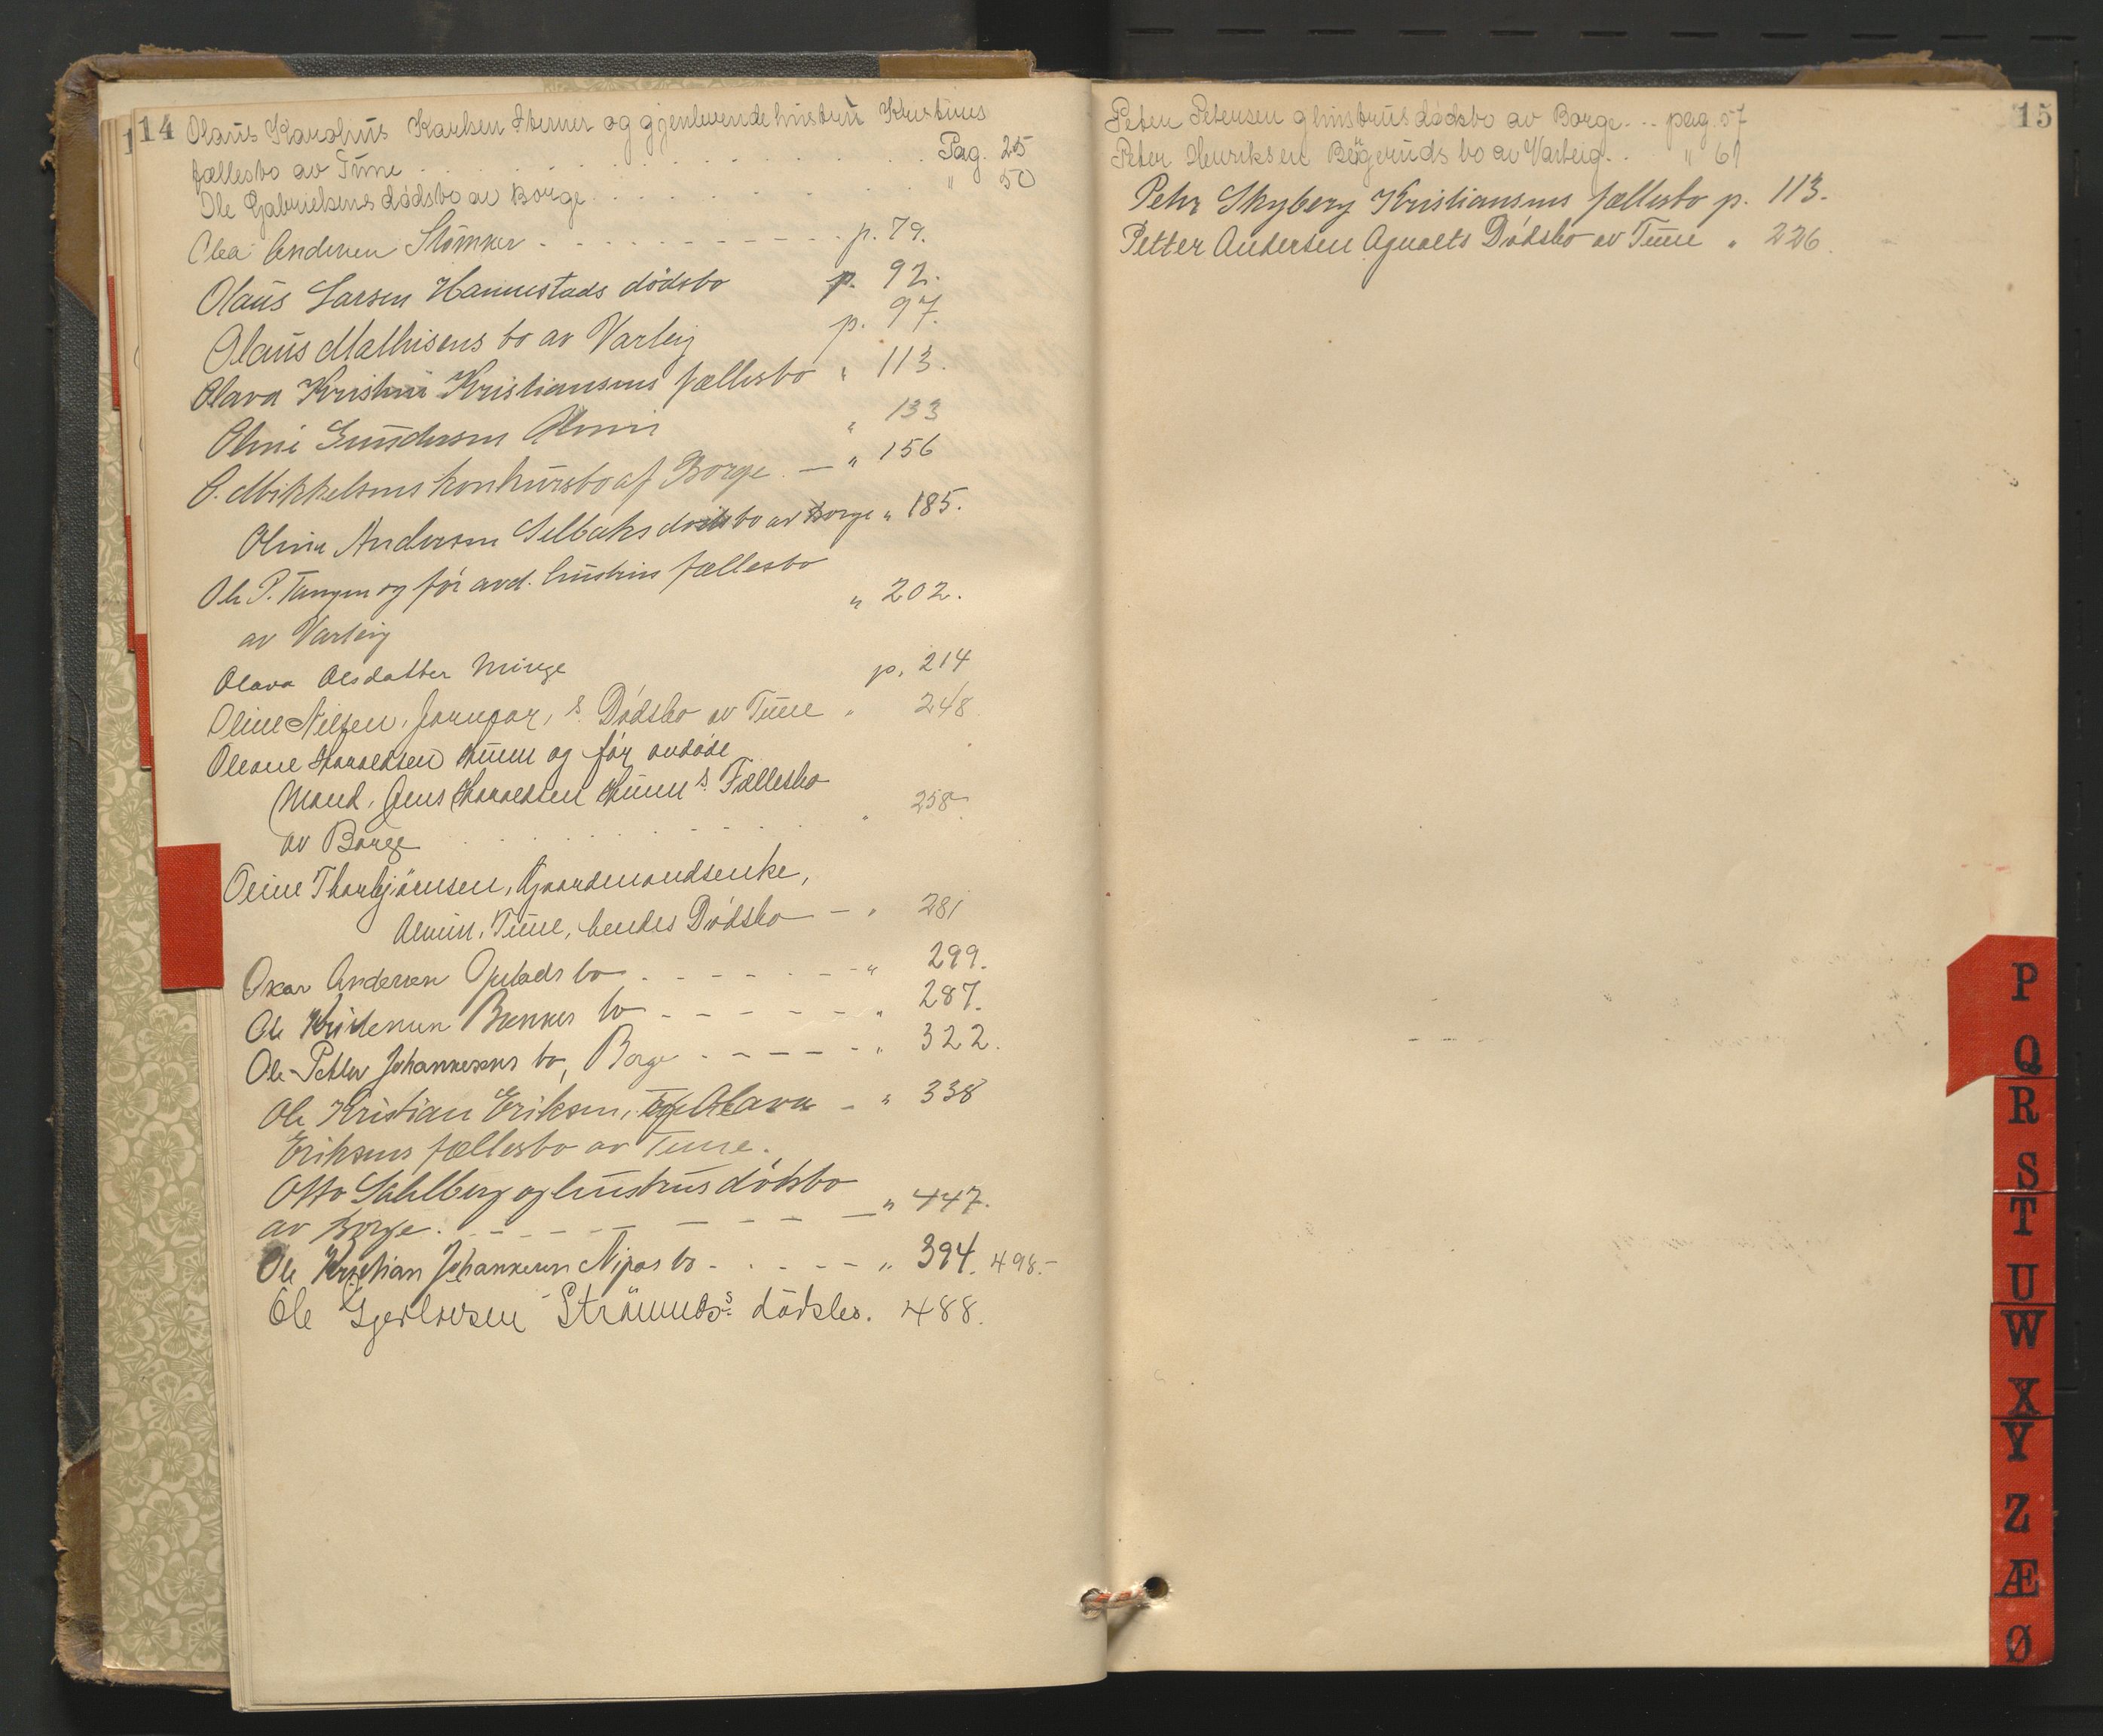 14
Olaus Karolius Karlsen Sterner og gjenlevende hustru Kristines
fællesbo av Tune . . . . . . Pag. 25
Ole Gabrielsens dødsbo av Borge . . . . . " 50
Olea Andersen Stömner - - - - - - p. 79.
Olaus Larsen Hannestads dödsbo p. 92.
Olaus Mathisens bo av Varteig p. 97.
Olava Kristine Kristiansens fællesbo " 113.
Oline Gundersen Alvim " 133
O. Mikkelsens konkursbo af Borge. — " 156
Olina Andersen Selbaks dødsbo av Borge " 185.
Ole P. Tungen og før avd. hustrus fællesbo
av Varteig " 202.
Olava Olsdatter Minge p. 214
Oline Nilsen, s. Dödsbo av Tune " 248
Oleane Haraldsen Hunn og før avdöde
Mand, Jens Haraldsen Hunn s. Fællesbo
av Borge . . . . . . " 258
Oline Thorbjörnsen, Gaardmandsenke,
Alvim, Tune, hendes Dödsbo — " 281
Oskar Andersen Opstads bo . - - - - - " 299.
Ole Kristensen Brennes bo - - - - - " 287.
Ole Petter Johannesens bo, Borge - - - - - " 322.
Ole Kristian Eriksen, og Olava — " 338
Eriksens fællesbo av Tune.
Otto Sahlberg og hustrus dödsbo
av Borge. - - - - - — " 447.
Ole Kristian Johannesen Nipas bo - - - - - " 394. 498.-
Ole Gjerlovsen Strömnes s. dödsbo. 488.
15
Peter Petersen g hustrus dødsbo av Borge - .. pag. 57
Peter Henriksen Bøgeruds bo av Varteig. . " 61
Petter Skyberg Kristiansens fællesbo p. 113.
Petter Andersen Agnalts Dödsbo av Tune " 226.
P
Q
R
S
T
U
W
X
Y
Z
Æ
Ø